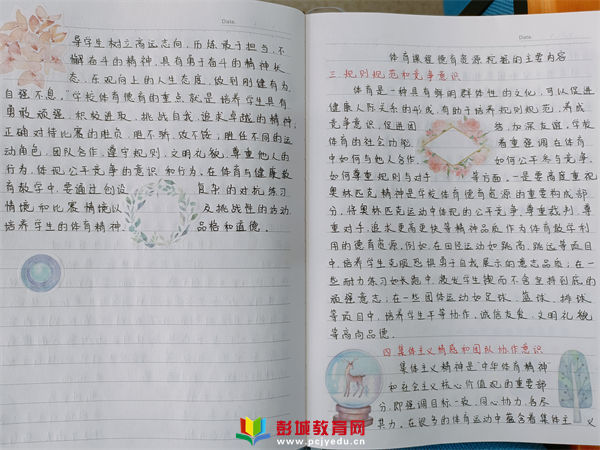 Date.
导学生树立高远志向,历炼敢于担当、不
懈奋斗的精神,具有勇于奋斗的精神状
态、乐观向上的人生态度,做到刚健有为,
自强不息。"学校体育德育的重点就是培养学生具有
勇敢顽强,积极进取,挑战自我,追求卓越的精神;
正确对待比赛的胜负,胜不骄,败不馁;胜任不同的运
动角色,团队合作、遵守规则,文明礼貌,尊重他人的
行为,体现公平竞争的意识和行为,在体育与健康教
育教学中,要通过创设 复杂的对抗练习
情境和比赛情境以 及挑战性的活动
培养学生的体育精神、 品格和道德。
Date
体育课程德育资源挖掘的主要内容
三.规则规范和竞争意识
体育是一种具有鲜明群体性的文化,可以促进
健康人际关系的形成,有助于培养规则规范,养成
竞争意识,促进团 结,加深友谊,学校
体育的社会功能 着重强调在体育
中如何与他人合作, 如何公平参与竞争、
如何尊重规则与对手 等方面,一是要高度重视
奥林匹克精神是学校体育德育资源的重要构成部
分,将奥林匹克运动中体现的公平竞争,尊重裁判、尊
重对手,追求更高更快等精神品质作为体育教学利
用的德育资源,例如,在田径运动如跳高、跳远等项目
中,培养学生克服恐惧勇于自我展示的意志品质;在一
些耐力练习如长跑中,激发学生锲而不舍坚持到底的
顽强意志;在一些团体运动如足球、篮球、排球
等项目中,培养学生平等协作,诚信友爱、文明礼貌
等高尚品德。
四.集体主义情感和团队协作意识
集体主义精神是"中华体育精神"
和社会主义核心价值观的重要部
分,即强调目标一致、同心协力、各尽
其力,在很多的体育运动中蕴含着集体主义
彭城教育网
www.pcjyedu.cn